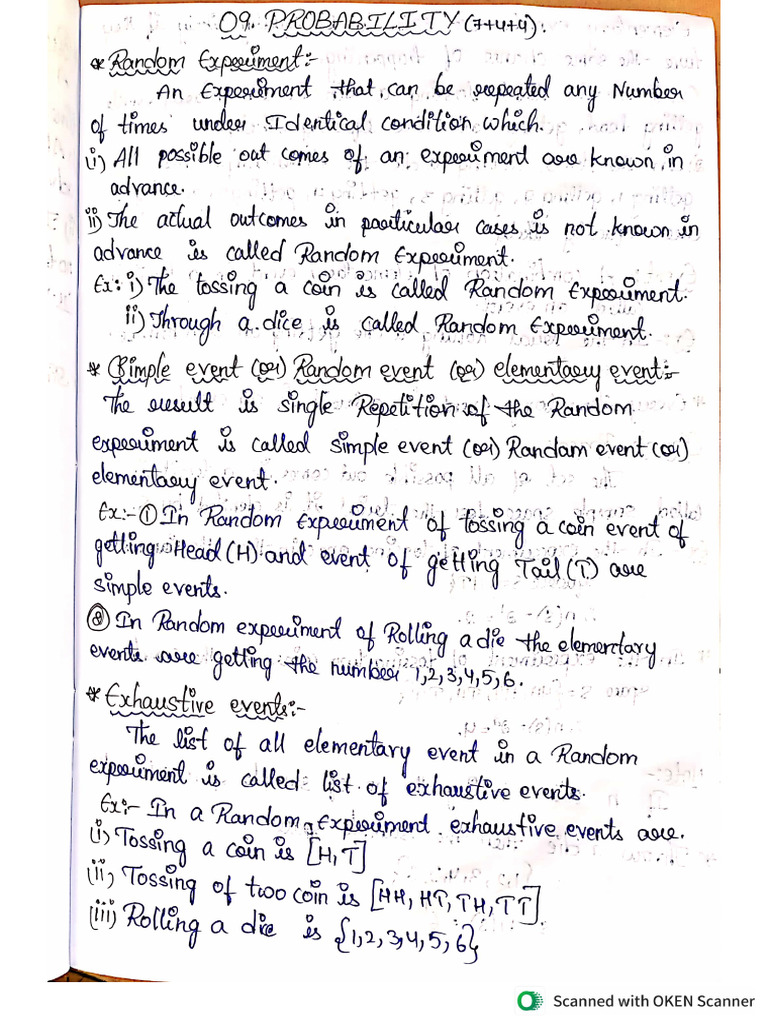 09. PROBABILITY (7+4+4).
* Random Experiment:-
An Experiment that can be repeated any Number
of times under Identical condition which.
(i) All possible out comes of an experiment are known in
advance.
ii) The actual outcomes in particular cases is not known in
advance is called Random Experiment.
Ex: i) The tossing a coin is called Random Experiment.
ii) Through a dice is called Random Experiment.
* Simple event (or) Random event (or) elementary event:-
The result is single Repetition of the Random
experiment is called simple event (or) Randam event (or)
elementary event.
Ex:- ① In Random Experiment of tossing a coin event of
getting Head (H) and event of getting Tail (T) are
simple events.
② In Random experiment of Rolling a die the elementary
events are getting the number 1,2,3,4,5,6.
* Exhaustive events:-
The list of all elementary event in a Random
experiment is called list of exhaustive events.
Ex:- In a Random Experiment exhaustive events are.
(i) Tossing a coin is [H,T]
(ii) Tossing of two coin is [HH, HT, TH, TT]
(iii) Rolling a dice is {1,2,3,4,5,6}
Scanned with OKEN Scanner